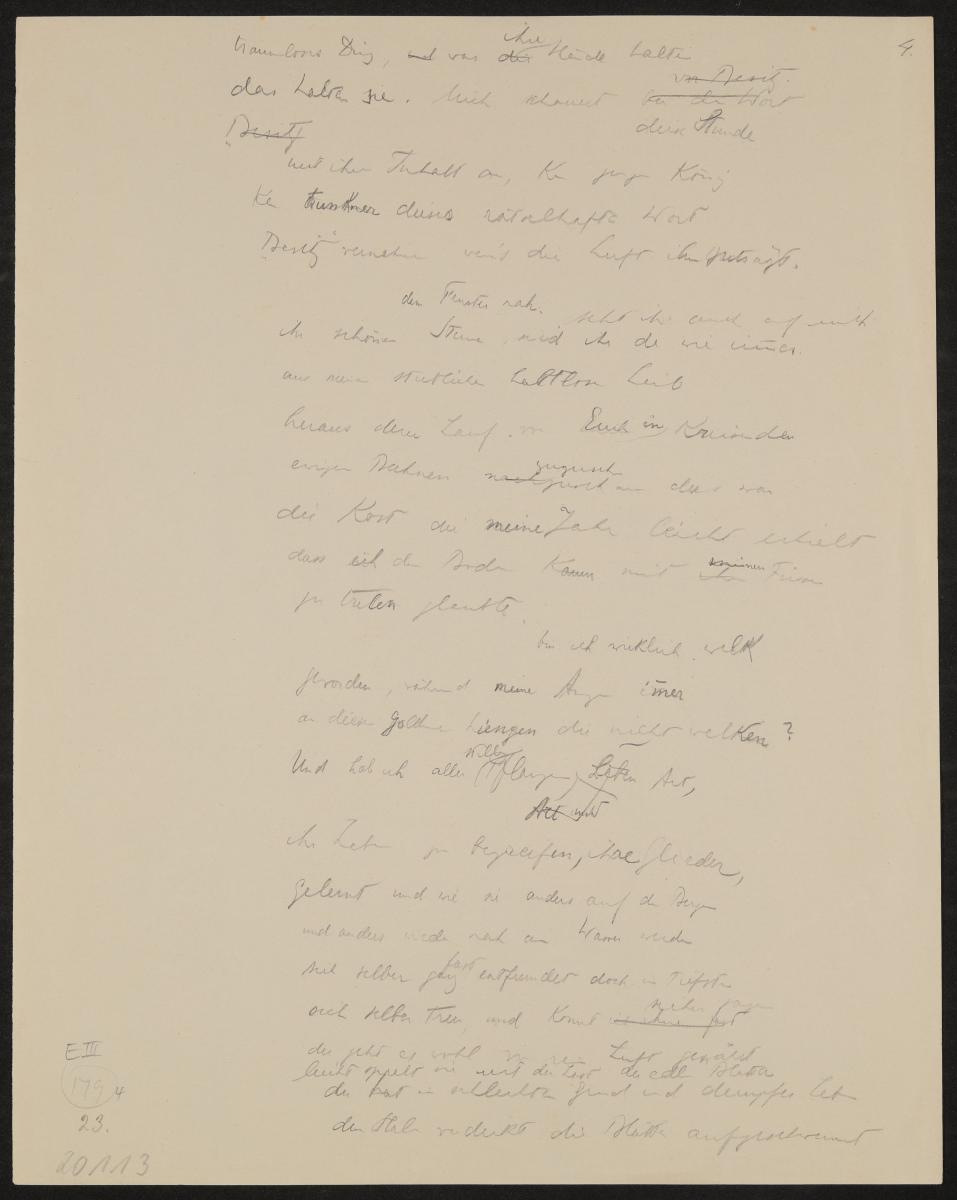 4.
traumloses Ding, und was die ihre Hände halten
von Besitz.
das halten sie. Mich schauert bei dem Wort
diese Stunde
„Besitz
mit ihrem Inhalt an, Kein junger König
Kein trunkner dieses rätselhafte Wort
„Besitz“ vernehmen wenn's die Luft ihm zuträgt.
dem Fenster nah.
seht ihr auch auf mich
ihr schönen Sterne, seid ihr da wie immer.
aus meinem sterblichen haltlosen Leib
heraus deren Lauf von Euch in Kreisenden
ewigen Bahnen nachzusehen zuzusehn dies war
die Kost die meine Jahre leicht erhielt
dass ich den Boden kaum mit meinen Füssen
zu treten glaubte.
bin ich wirklich welk
geworden, während meine Augen immer
an diesen goldnen hiengen die nicht welken?
Und hab ich aller stillen Pflanzen Leben Art,
Art und
ihr Leben zu begreifen, ihre Glieder,
gelernt und wie sie anders auf den Bergen
und anders wieder nah am Wasser werden
sich selber ganz fast entfremdet doch im Tiefsten
sich selber treu, und konnt
sicher sagen
der geht es wohl von reiner Luft genährt
leicht spielt sie mit der Last der edlen Blätter
der hat ein schlechter Grund und dumpfes Leben
den Halm verdickt die Blätter aufgeschwemmt
E III
179 4
23.
20113